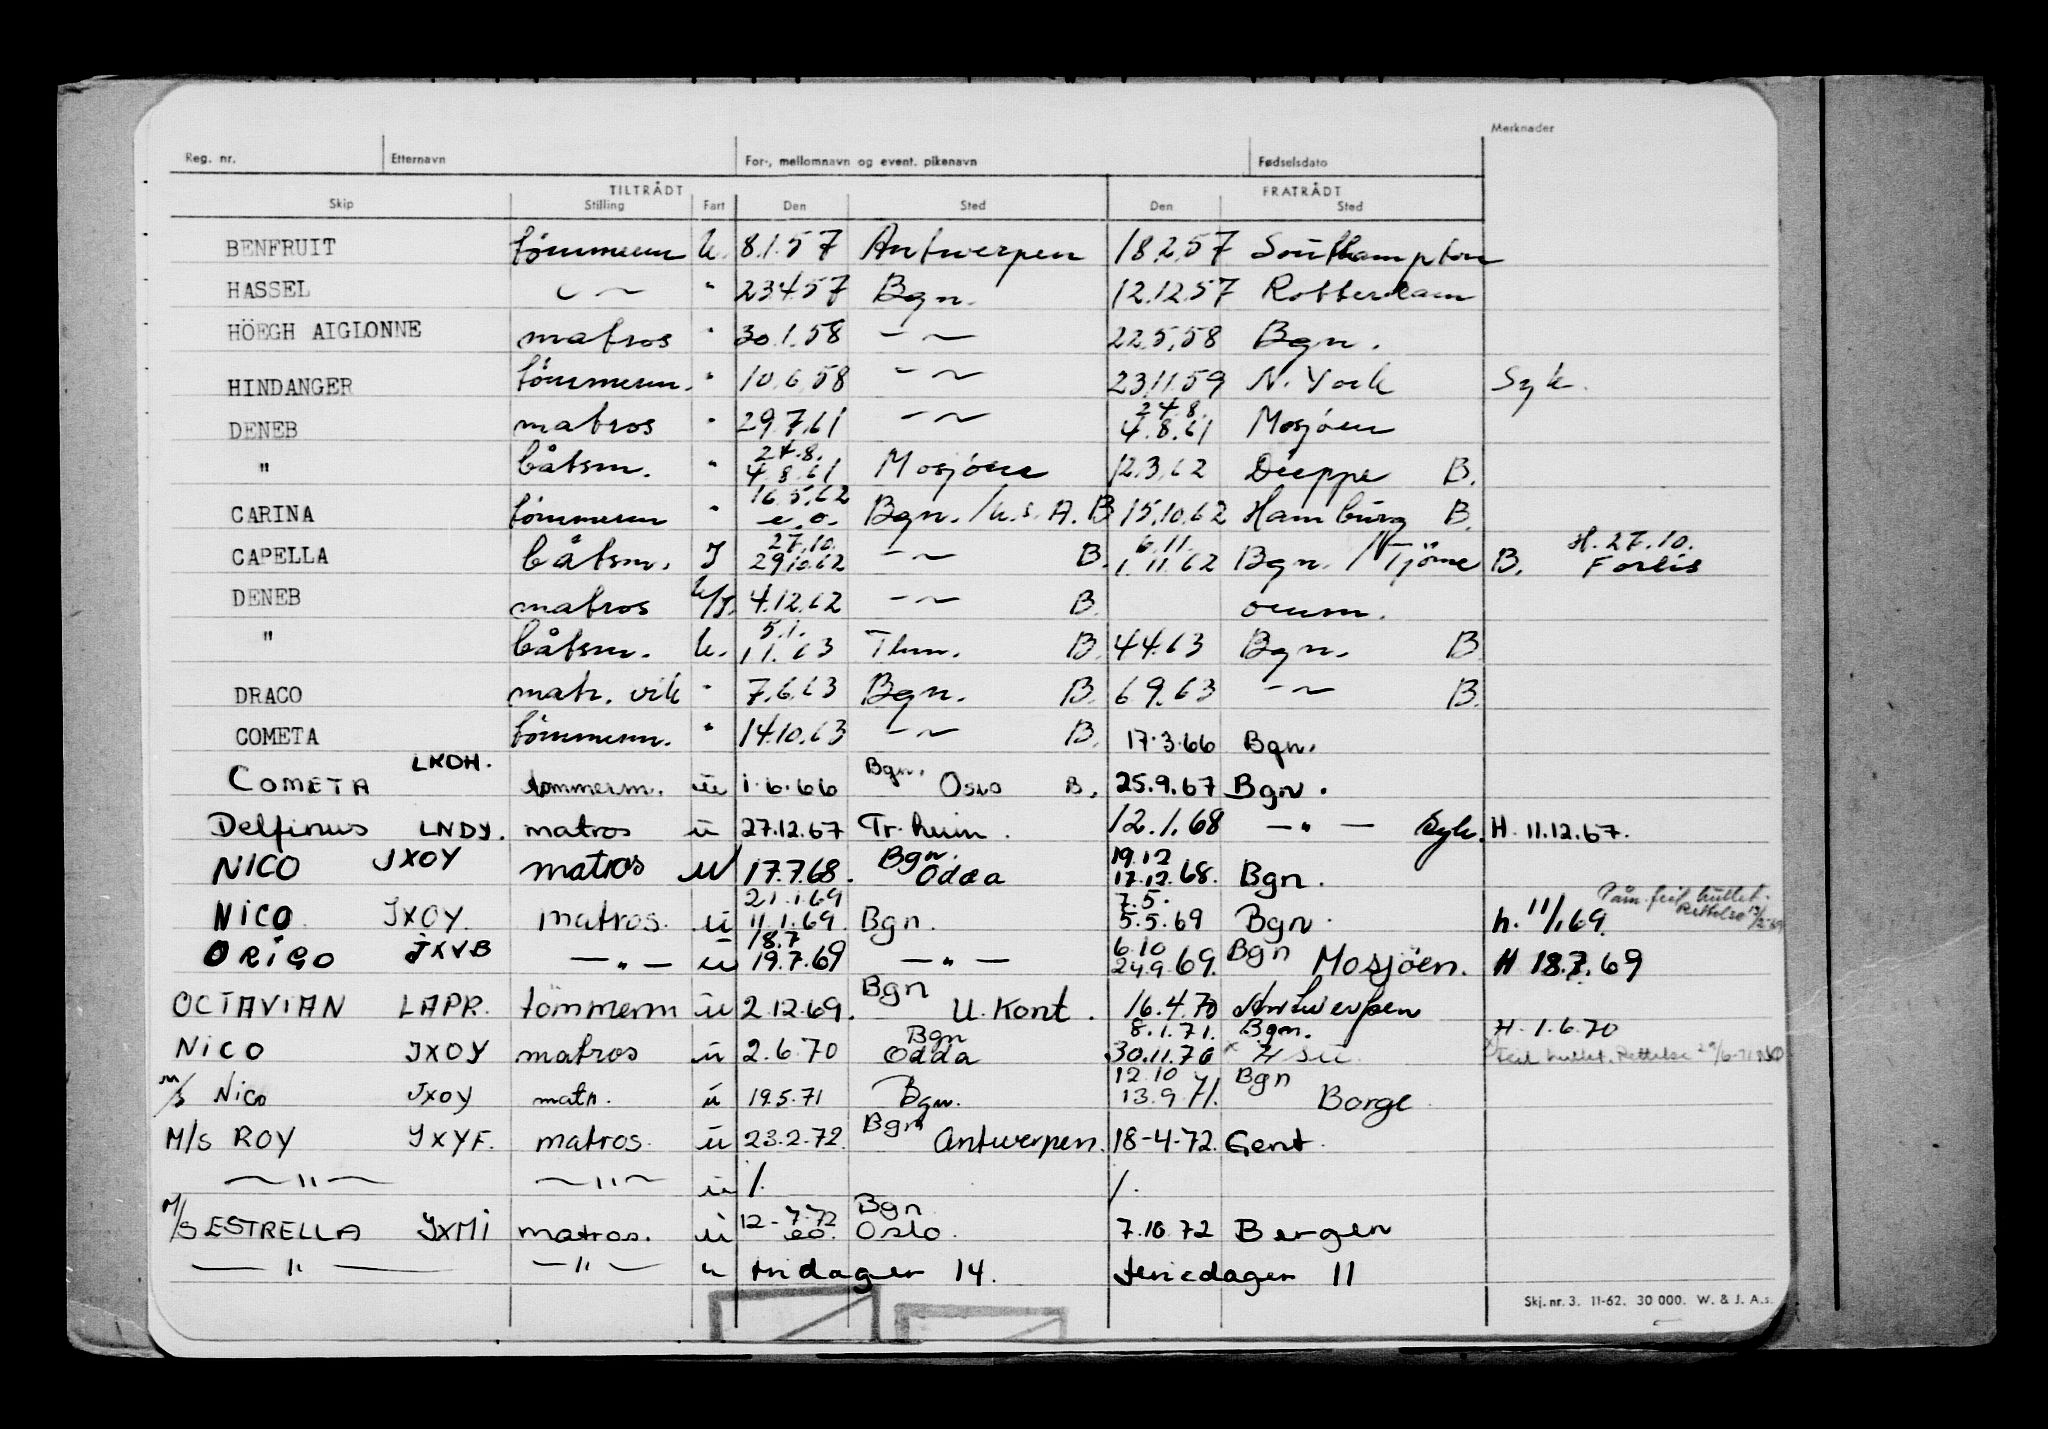 Merknader
Reg. nr. Etternavn For-, mellomnavn og event. pikenavn Fødselsdato
TILTRÅDT FRATRÅDT
Skip Stilling Fart Den Sted Den Sted
BENFRUIT tömmerm U. 8.1.57 Antwerpen 18.2.57 Southampton
HASSEL — " 23.4.57 Bgn. 12.12.57 Rotterdam
HÖEGH AIGLONNE matros " 30.1.58 — 22.5.58 Bgn.
HINDANGER tömmerm. " 10.6.58 — 23.11.59 N. York Syk.
24.8.
DENEB matros " 29.7.61 — 4.8.61 Mosjöen
24.8.
" båtsm. " 4.8.61 Mosjöen 12.3.62 Dieppe B.
16.5.62
CARINA tömmerm " e.o. Bgn. /U.S.A. B 15.10.62 Hamburg B.
27.10. 6.11. H. 27.10.
CAPELLA båtsm. I 29.10.62 — B. 1.11.62 Bgn. / Tjöme B. Forlis
DENEB matros U/I. 4.12.62 — B. omm.
5.1.
" båtsm. U. 1.1.63 Thm. B. 4.4.63 Bgn. B
DRACO matr. vik " 7.6.63 Bgn. B. 6.9.63 — B.
COMETA tömmerm. " 14.10.63 — B. 17.3.66 Bgn.
LKOH. Bgn.
COMETA tømmerm. u 1.6.66 Oslo B. 25.9.67 Bgn.
Delfinus LNDY. matros u 27.12.67 Tr.heim. 12.1.68 — " — Syk. H. 11.12.67.
Bgn. 19.12
NICO JXOY matros u 17.7.68. Odda 17.12.68. Bgn.
21.1.69 7.5. feil hullet. Rettelse
NICO. JXOY. matros. u 11.1.69. Bgn. 5.5.69 Bgn. h. 11/1.69.
18.7 6.10
ORIGO JXVB — " — u 19.7.69 — " — 24.9.69. Bgn Mosjöen. H 18.7.69
Bgn
OCTAVIAN LAPR. tömmerm u 2.12.69. U. Kont. 16.4.70 Antwerpen
Bgn 8.1.71. Bgn. H. 1.6.70
NICO JXOY matros u 2.6.70 Odda 30.11.70 Feil hullet. Rettelse
12.10 Bgn
M/S NICO JXOY matr. u 19.5.71 Bgn. 13.9.71. Borge
Bgn
M/S ROY JXYF. matros. u 23.2.72. Antwerpen. 18-4-72. Gent.
— " — — " — u /. /.
Bgn
M/S ESTRELLA JXMI matros. u 12-7-72 eo. Oslo. 7.10.72 Bergen
— " — — " — " fridager 14. feriedager 11
Skj. nr. 3. 11-62. 30 000. W. & J. A.s.